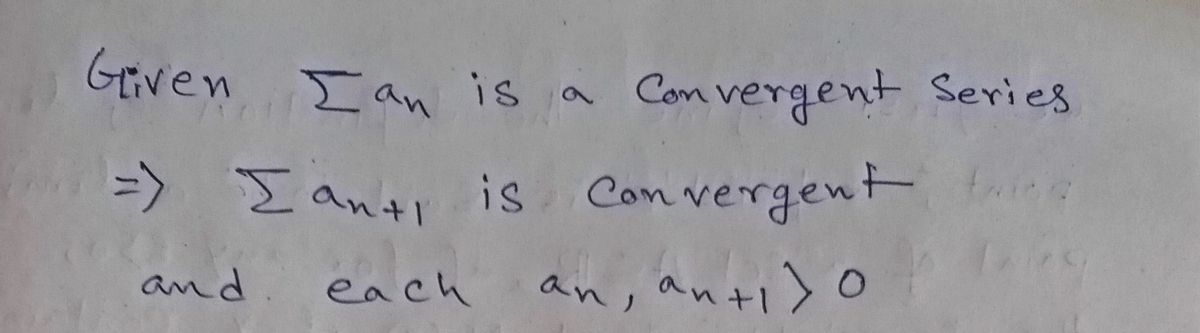 Given Σ aₙ is a Convergent Series
=> Σ aₙ₊₁ is Convergent
and each aₙ, aₙ₊₁ > 0